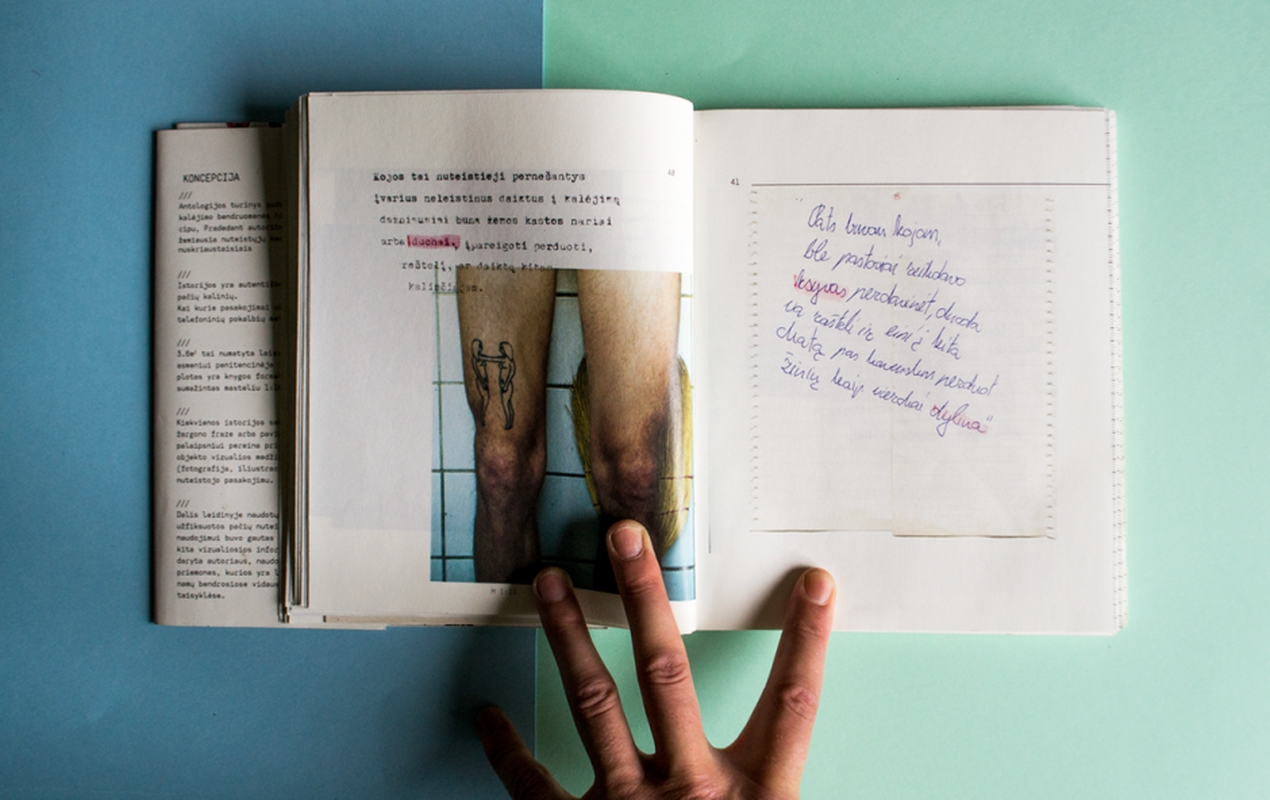 KONCEPCIJA
///
Antologijos turinys
kalėjimo bendruomenės
cipu. Pradedant autori
žemiausia nuteistųjų
nuskriaustaisiais
///
Istorijos yra autenti
pačių kalinių.
Kai kurie pasakojimai
telefoninių pokalbių
///
3.6m² tai numatyta
asmeniui penitencinėje
plotas yra knygos forma
sumažintas masteliu
///
Kiekvienos istorijos
žargono fraze arba
palaipsniui pereina
objekto vizualios
(fotografija, iliustrac
nuteistojo pasakojimu.
///
Dalis leidinyje naudotų
užfiksuotos pačių nutei
naudojimui buvo gautas
kita vizualiosios infor
daryta autoriaus, naudo
priemones, kurios yra
namų bendrosiose vidaus
taisyklėse.
Kojos tai nuteistieji pernešantys
įvarius neleistinus daiktus į kalėjimą
dažniausiai būna žemos kastos nariai
arba duchai, įpareigoti perduoti,
raštelį, ar daiktą kitam
kalinčiajam.
41
"Pats buvau kojom,
ble pastoviai reikdavo
ksyvas perdavinėt, duoda
va raštelį ir eini į kita
chatą pas
žinių kaip